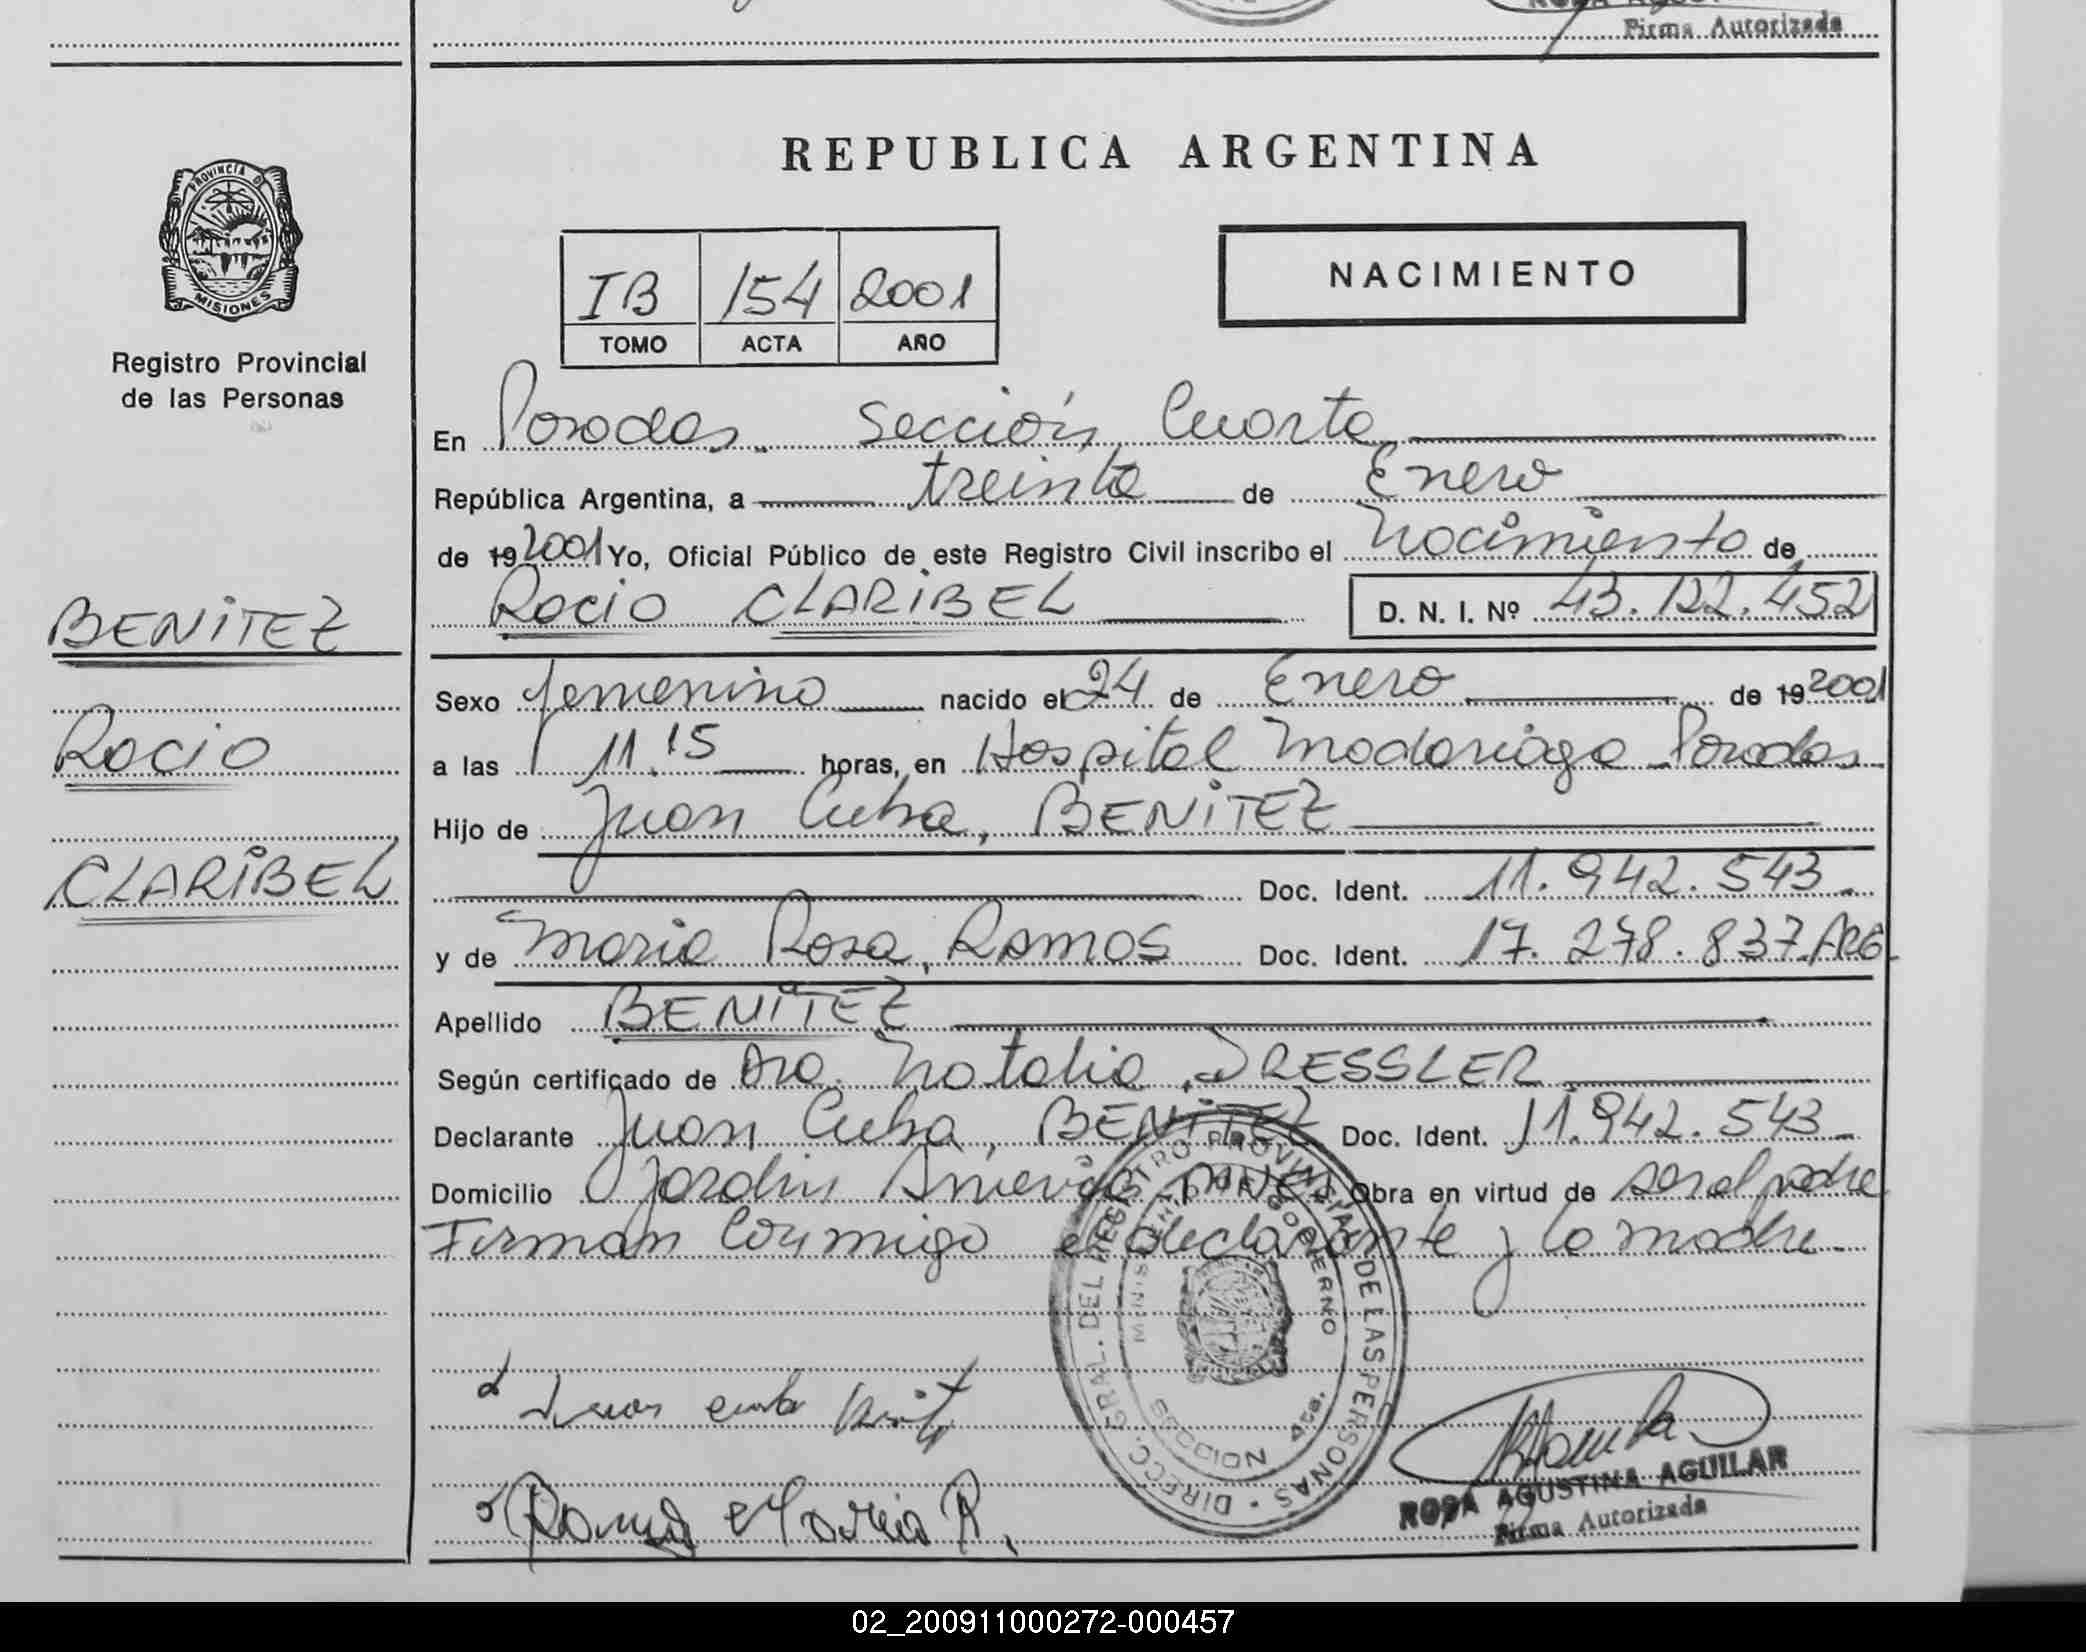 Firma Autorizada
PROVINCIA DE
MISIONES
Registro Provincial
de las Personas
BENITEZ
Rocio
CLARIBEL
REPUBLICA ARGENTINA
IB 154 2001
TOMO ACTA AÑO
NACIMIENTO
En Posadas Sección Cuarta
República Argentina, a treinta de Enero
de 19 2001 Yo, Oficial Público de este Registro Civil inscribo el Nacimiento de
Rocio CLARIBEL D. N. I. Nº 43.122.452
Sexo femenino nacido el 24 de Enero de 19 2001
a las 11.15 horas, en Hospital Madariaga Posadas
Hijo de Juan Cuba, BENITEZ
Doc. Ident. 11.942.543
y de Maria Rosa, Ramos Doc. Ident. 17.278.837 ARG
Apellido BENITEZ
Según certificado de Dra. Natalia DRESSLER
Declarante Juan Cuba, BENITEZ Doc. Ident. 11.942.543
Domicilio Jardin America MNES Obra en virtud de ser el padre
Firman Conmigo el declarante y la madre
DIRECC. GRAL. DEL REGISTRO PROVINCIAL DE LAS PERSONAS
MINISTERIO DE GOBIERNO
Juan cuba
Ramos Maria R.
ROSA AGUSTINA AGUILAR
Firma Autorizada
02_200911000272-000457